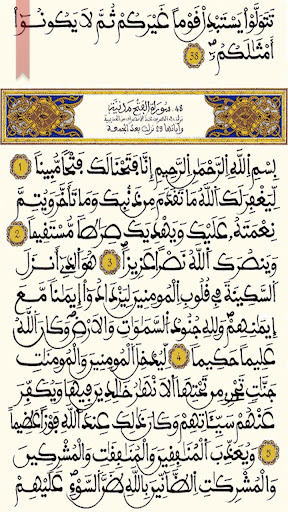 تَتَوَلَّوْاْ يَسْتَبْدِلْ قَوْماً غَيْرَكُمْ ثُمَّ لَا يَكُونُوٓاْ
أَمْثَٰلَكُمْ 38
48 سورة الفتح مدنية
نزلت في الطريق عند الانصراف من الحديبية
وآياتها 29 نزلت بعد الجمعة
بِسْمِ اِللَّهِ اِلرَّحْمَٰنِ اِلرَّحِيمِ إِنَّا فَتَحْنَا لَكَ فَتْحاً مُّبِيناً 1
لِّيَغْفِرَ لَكَ اَللَّهُ مَا تَقَدَّمَ مِن ذَنۢبِكَ وَمَا تَأَخَّرَ وَيُتِمَّ
نِعْمَتَهُۥ عَلَيْكَ وَيَهْدِيَكَ صِرَٰطاً مُّسْتَقِيماً 2
وَيَنصُرَكَ اَللَّهُ نَصْراً عَزِيزاً 3 هُوَ اَلذِےٓ أَنزَلَ
اَلسَّكِينَةَ فِے قُلُوبِ اِلْمُومِنِينَ لِيَزْدَادُوٓاْ إِيمَٰناً مَّعَ
إِيمَٰنِهِمْ وَلِلهِ جُنُودُ اُلسَّمَٰوَٰتِ وَالَارْضِ وَكَانَ اَللَّهُ
عَلِيماً حَكِيماً 4 لِّيُدْخِلَ اَلْمُومِنِينَ وَالْمُومِنَٰتِ
جَنَّٰتٍ تَجْرِے مِن تَحْتِهَا اَلَانْهَٰرُ خَٰلِدِينَ فِيهَا وَيُكَفِّرَ
عَنْهُمْ سَيِّـَٔاتِهِمْ وَكَانَ ذَٰلِكَ عِندَ اَللَّهِ فَوْزاً عَظِيماً
5 وَيُعَذِّبَ اَلْمُنَٰفِقِينَ وَالْمُنَٰفِقَٰتِ وَالْمُشْرِكِينَ
وَالْمُشْرِكَٰتِ اِلظَّآنِّينَ بِاللَّهِ ظَنَّ اَلسَّوْءِ عَلَيْهِمْ